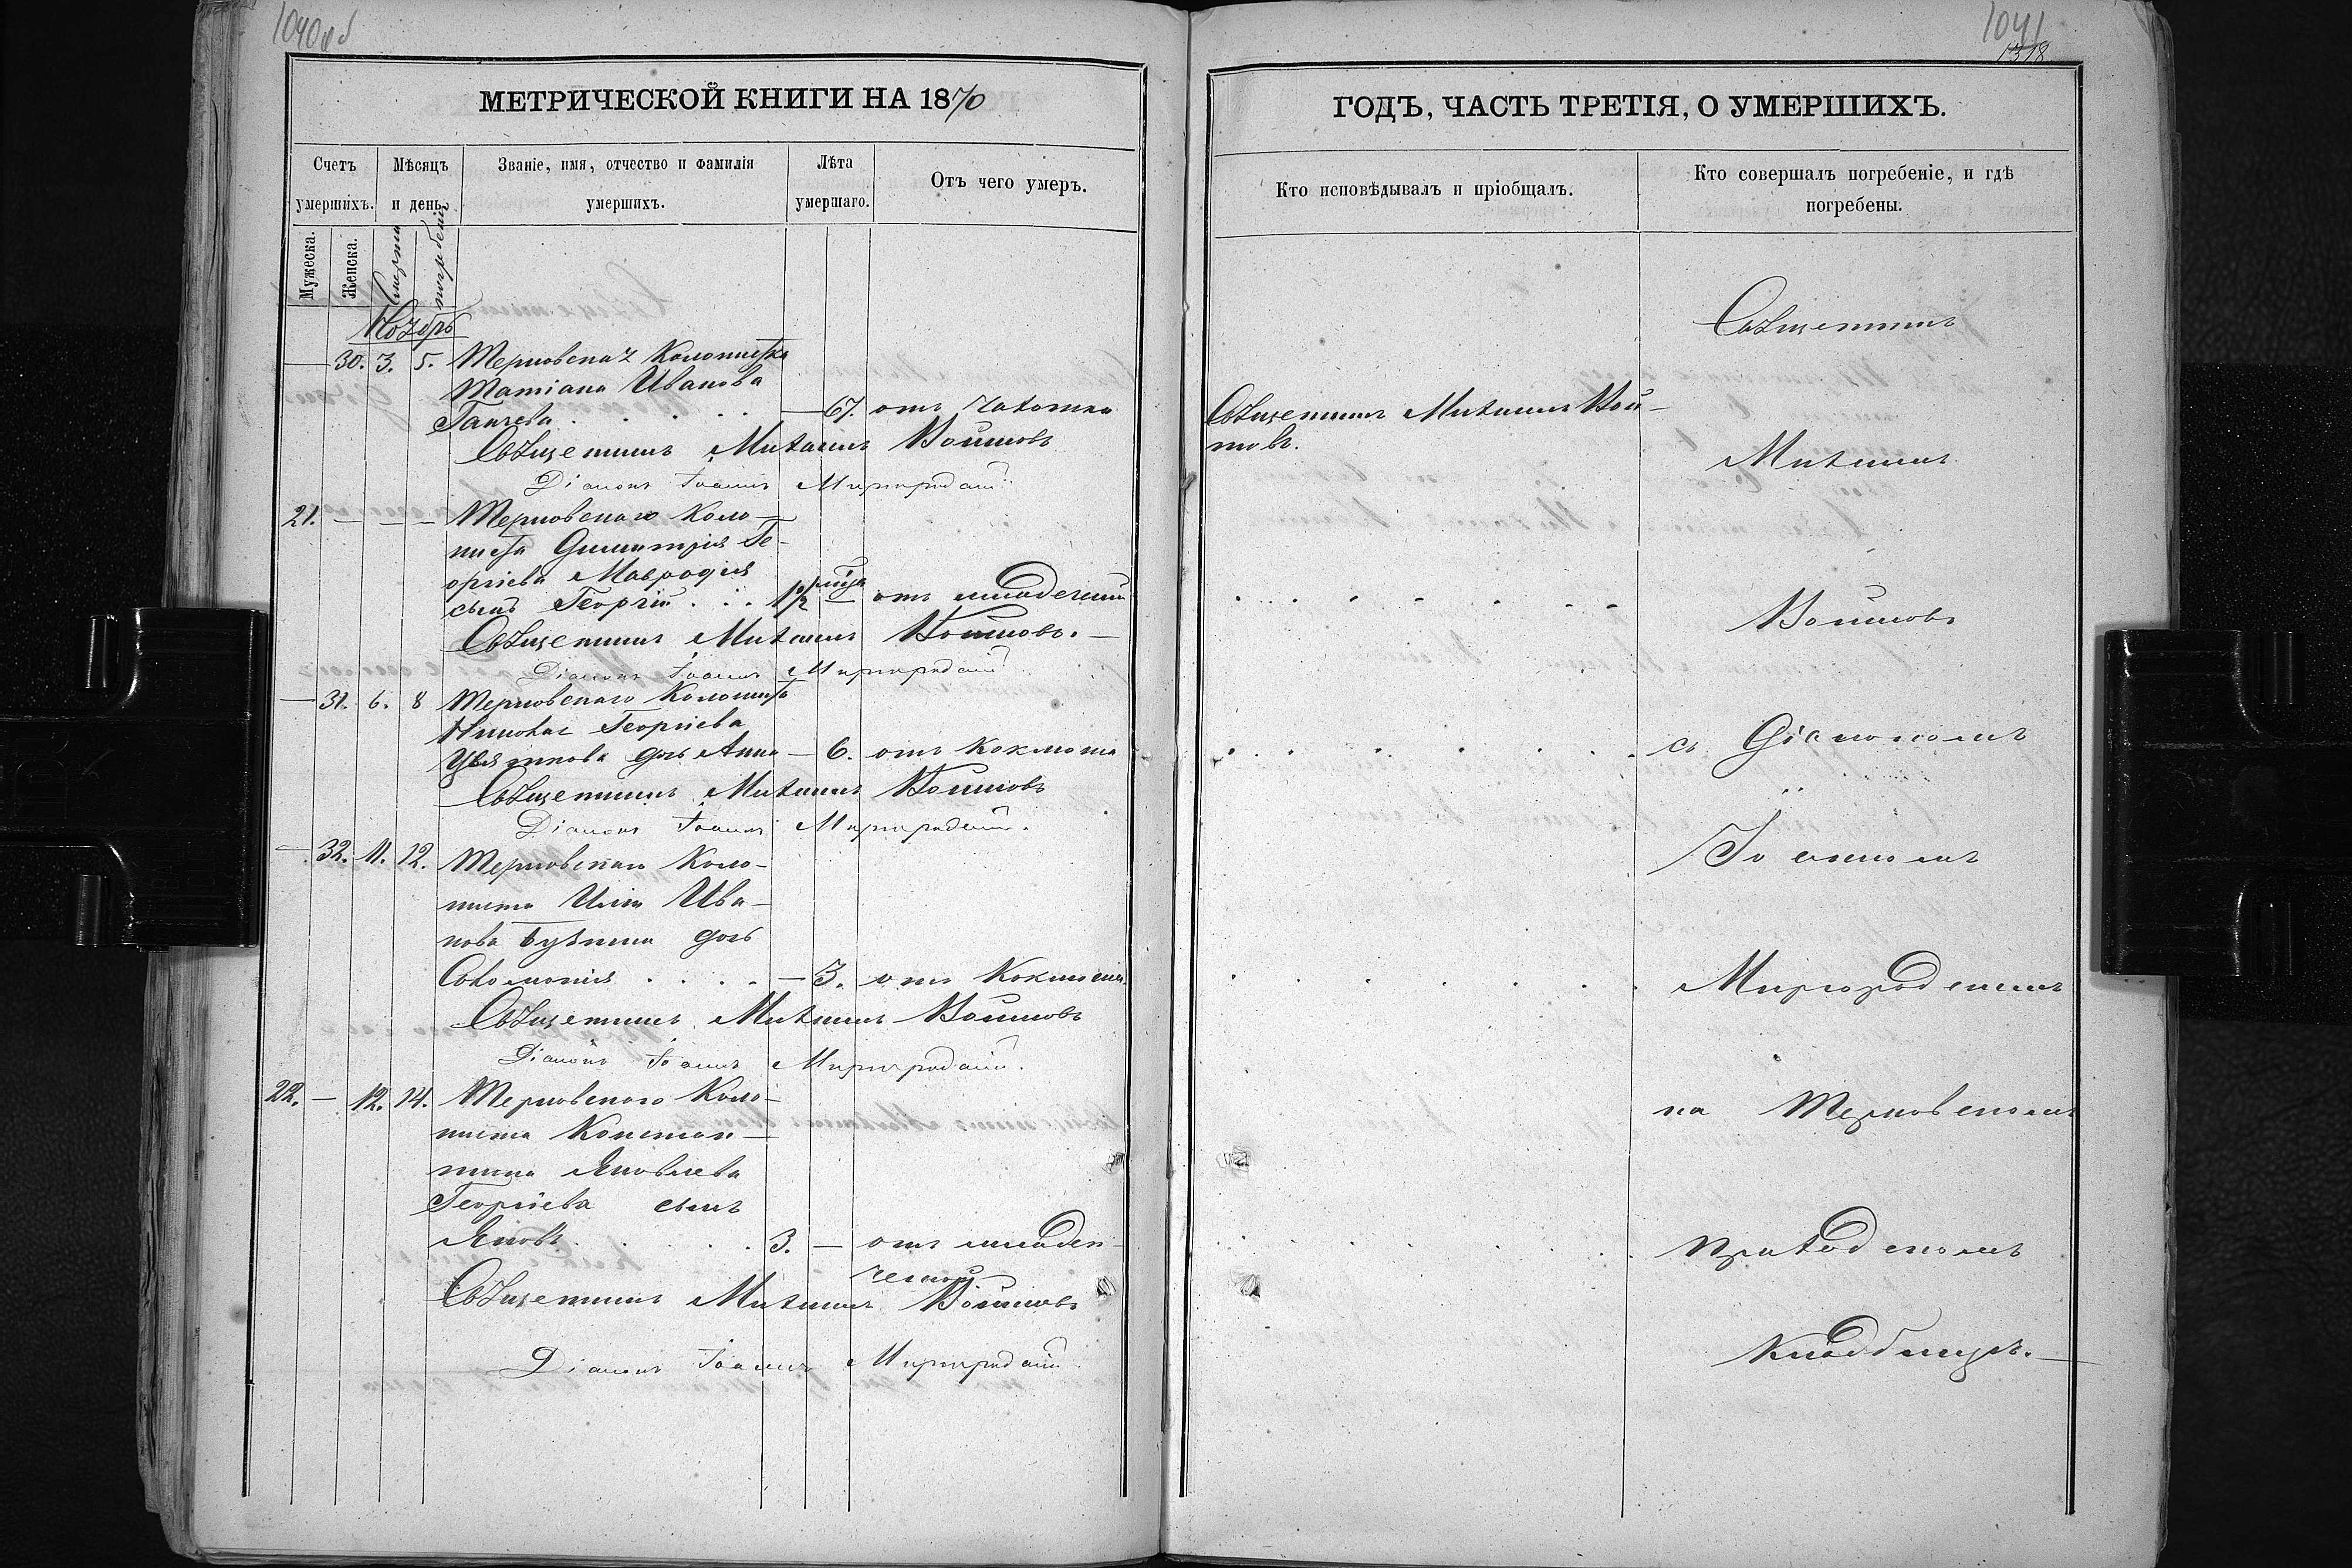 1040об
МЕТРИЧЕСКОЙ КНИГИ НА 1870
Счетъ умершихъ.
Мѣсяцъ и день
Званіе, имя, отчество и фамилія умершихъ.
Лѣта умершаго.
Отъ чего умеръ.
Мужеска.
Женска.
Смерти
погребенія
Ноябрь
30. 3. 5. Терновская Колонистка
Татіана Иванова
Ганчева . . . . — 67. отъ чахотки
Священникъ Михаилъ Войновъ
Діаконъ Іоаннъ Миргородскій
21. — — — Терновскаго Коло-
ниста Димитрія Ге-
оргіева Мавродія
сынъ Георгій . . . 1/2 мца — отъ младенчей
Священникъ Михаилъ Войновъ. —
Діаконъ Іоаннъ Миргородскій
— 31. 6. 8 Терновскаго Колониста
Николая Георгіева
Цвяткова дочь Анна — 6. отъ Коклюша
Священникъ Михаилъ Войновъ
Діаконъ Іоаннъ Миргородскій.
— 32. 11. 12. Терновскаго Коло-
ниста Иліи Ива-
нова дочь
Соломонія . . . . — 3. отъ Коклюша.
Священникъ Михаилъ Войновъ
Діаконъ Іоаннъ Миргородскій.
22. — 12. 14. Терновскаго Коло-
ниста Констан-
тина Яковлева
Георгіева сынъ
Яковъ . . . . . 3. — отъ младен-
ческой
Священникъ Михаилъ Войновъ
Діаконъ Іоаннъ Миргородскій
1041
1318
ГОДЪ, ЧАСТЬ ТРЕТІЯ, О УМЕРШИХЪ.
Кто исповѣдывалъ и пріобщалъ.
Кто совершалъ погребеніе, и гдѣ погребены.
Священникъ Михаилъ Вой-
новъ.
Священникъ
Михаилъ
Войновъ
съ Діакономъ
Іоанномъ
Миргородскимъ
на Терновскомъ
приходскомъ
кладбищѣ. —